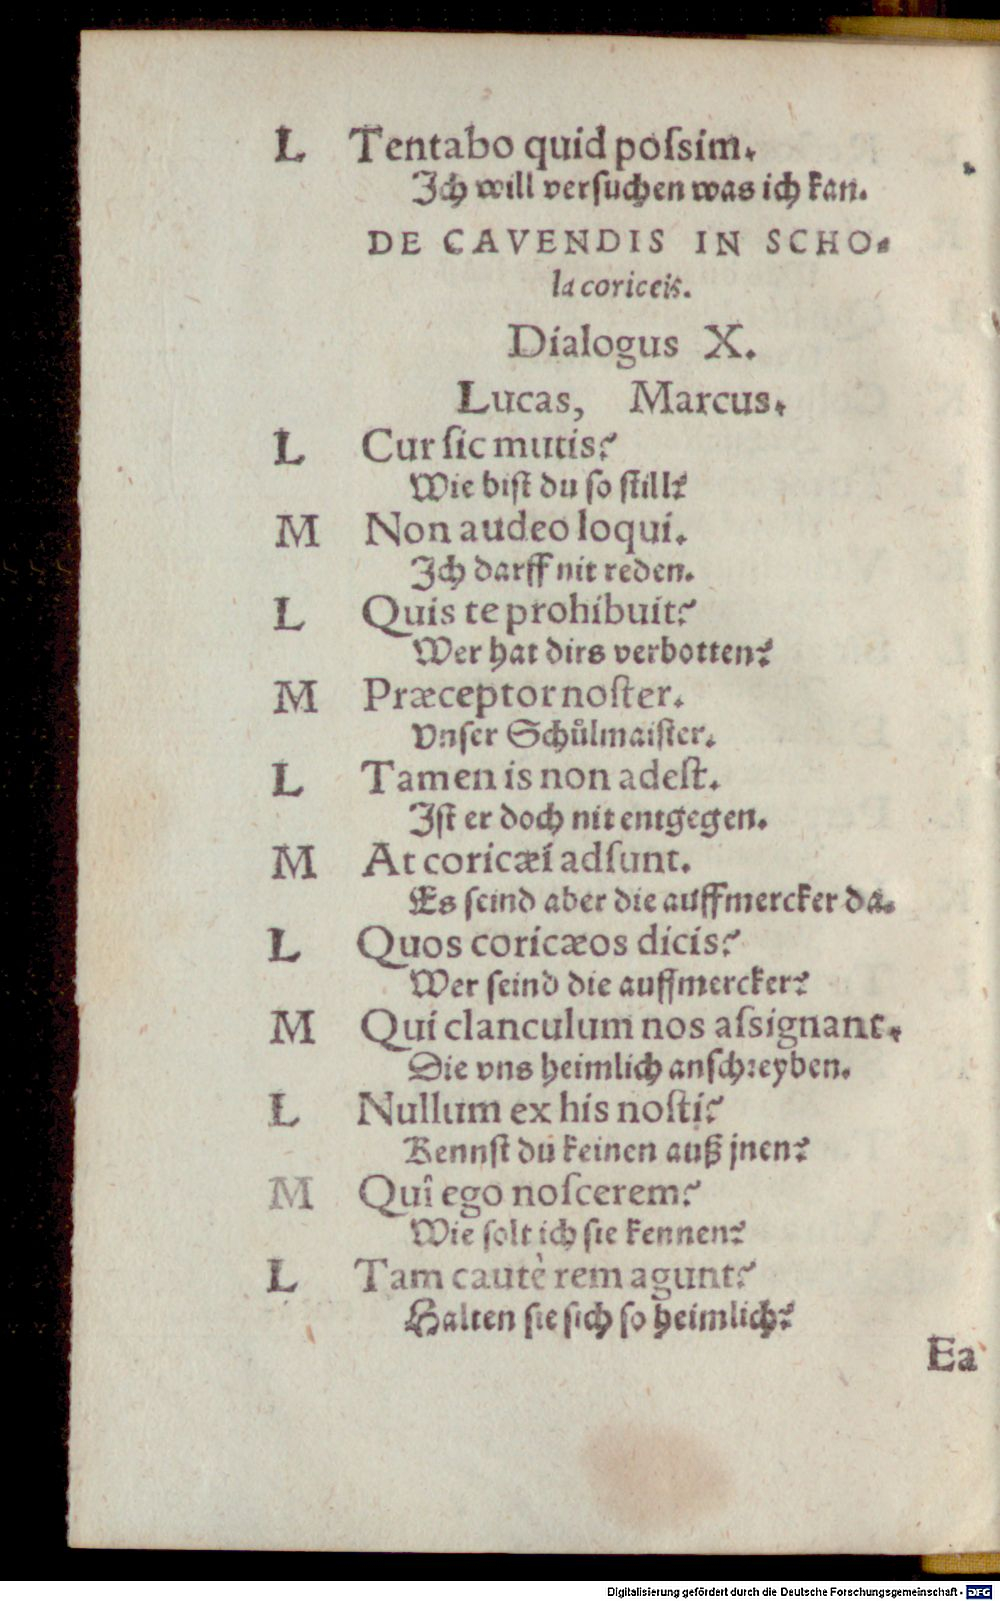 L Tentabo quid poſsim.
Ich will verſuchen was ich kan.
DE CAVENDIS IN SCHO-
la coriceis.
Dialogus X.
Lucas, Marcus.
L Cur ſic mutis?
Wie biſt du ſo ſtill?
M Non audeo loqui.
Ich darff nit reden.
L Quis te prohibuit?
Wer hat dirs verbotten?
M Præceptor noſter.
Vnſer Schůlmaiſter.
L Tamen is non adeſt.
Iſt er doch nit entgegen.
M At coricæi adſunt.
Es ſeind aber die auffmercker da.
L Quos coricæos dicis?
Wer ſeind die auffmercker?
M Qui clanculum nos aſsignant.
Die vns heimlich anſchreyben.
L Nullum ex his noſti?
Kennſt du keinen auß jnen?
M Quî ego noſcerem?
Wie ſolt ich ſie kennen?
L Tam cautè rem agunt?
Halten ſie ſich ſo heimlich?
Ea
Digitalisierung gefördert durch die Deutsche Forschungsgemeinschaft - DFG